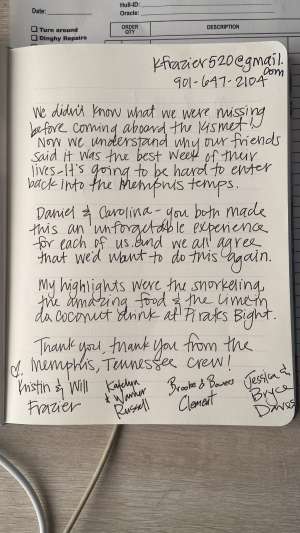 Date:
Hull-ID:
Oracle:
Turn around
Dinghy Repairs
ORDER QTY
DESCRIPTION
kfrazier520@gmail.com
901-647-2104
We didn't know what we were missing
before coming aboard the Kismet!
Now we understand why our friends
said it was the best week of their
lives-It's going to be hard to enter
back into the Memphis temps.
Daniel & Carolina - you both made
this an unforgettable experience
for each of us and we all agree
that we'd want to do this again.
My highlights were the snorkeling,
the amazing food & the Lime in
da Coconut drink at Pirates Bight.
Thank you, thank you from the
Memphis, Tennessee crew!
Kristin & Will
Frazier
Katelyn
& Walker
Russell
Brooke & Bowers
Clement
Jessica &
Bryce
Davis